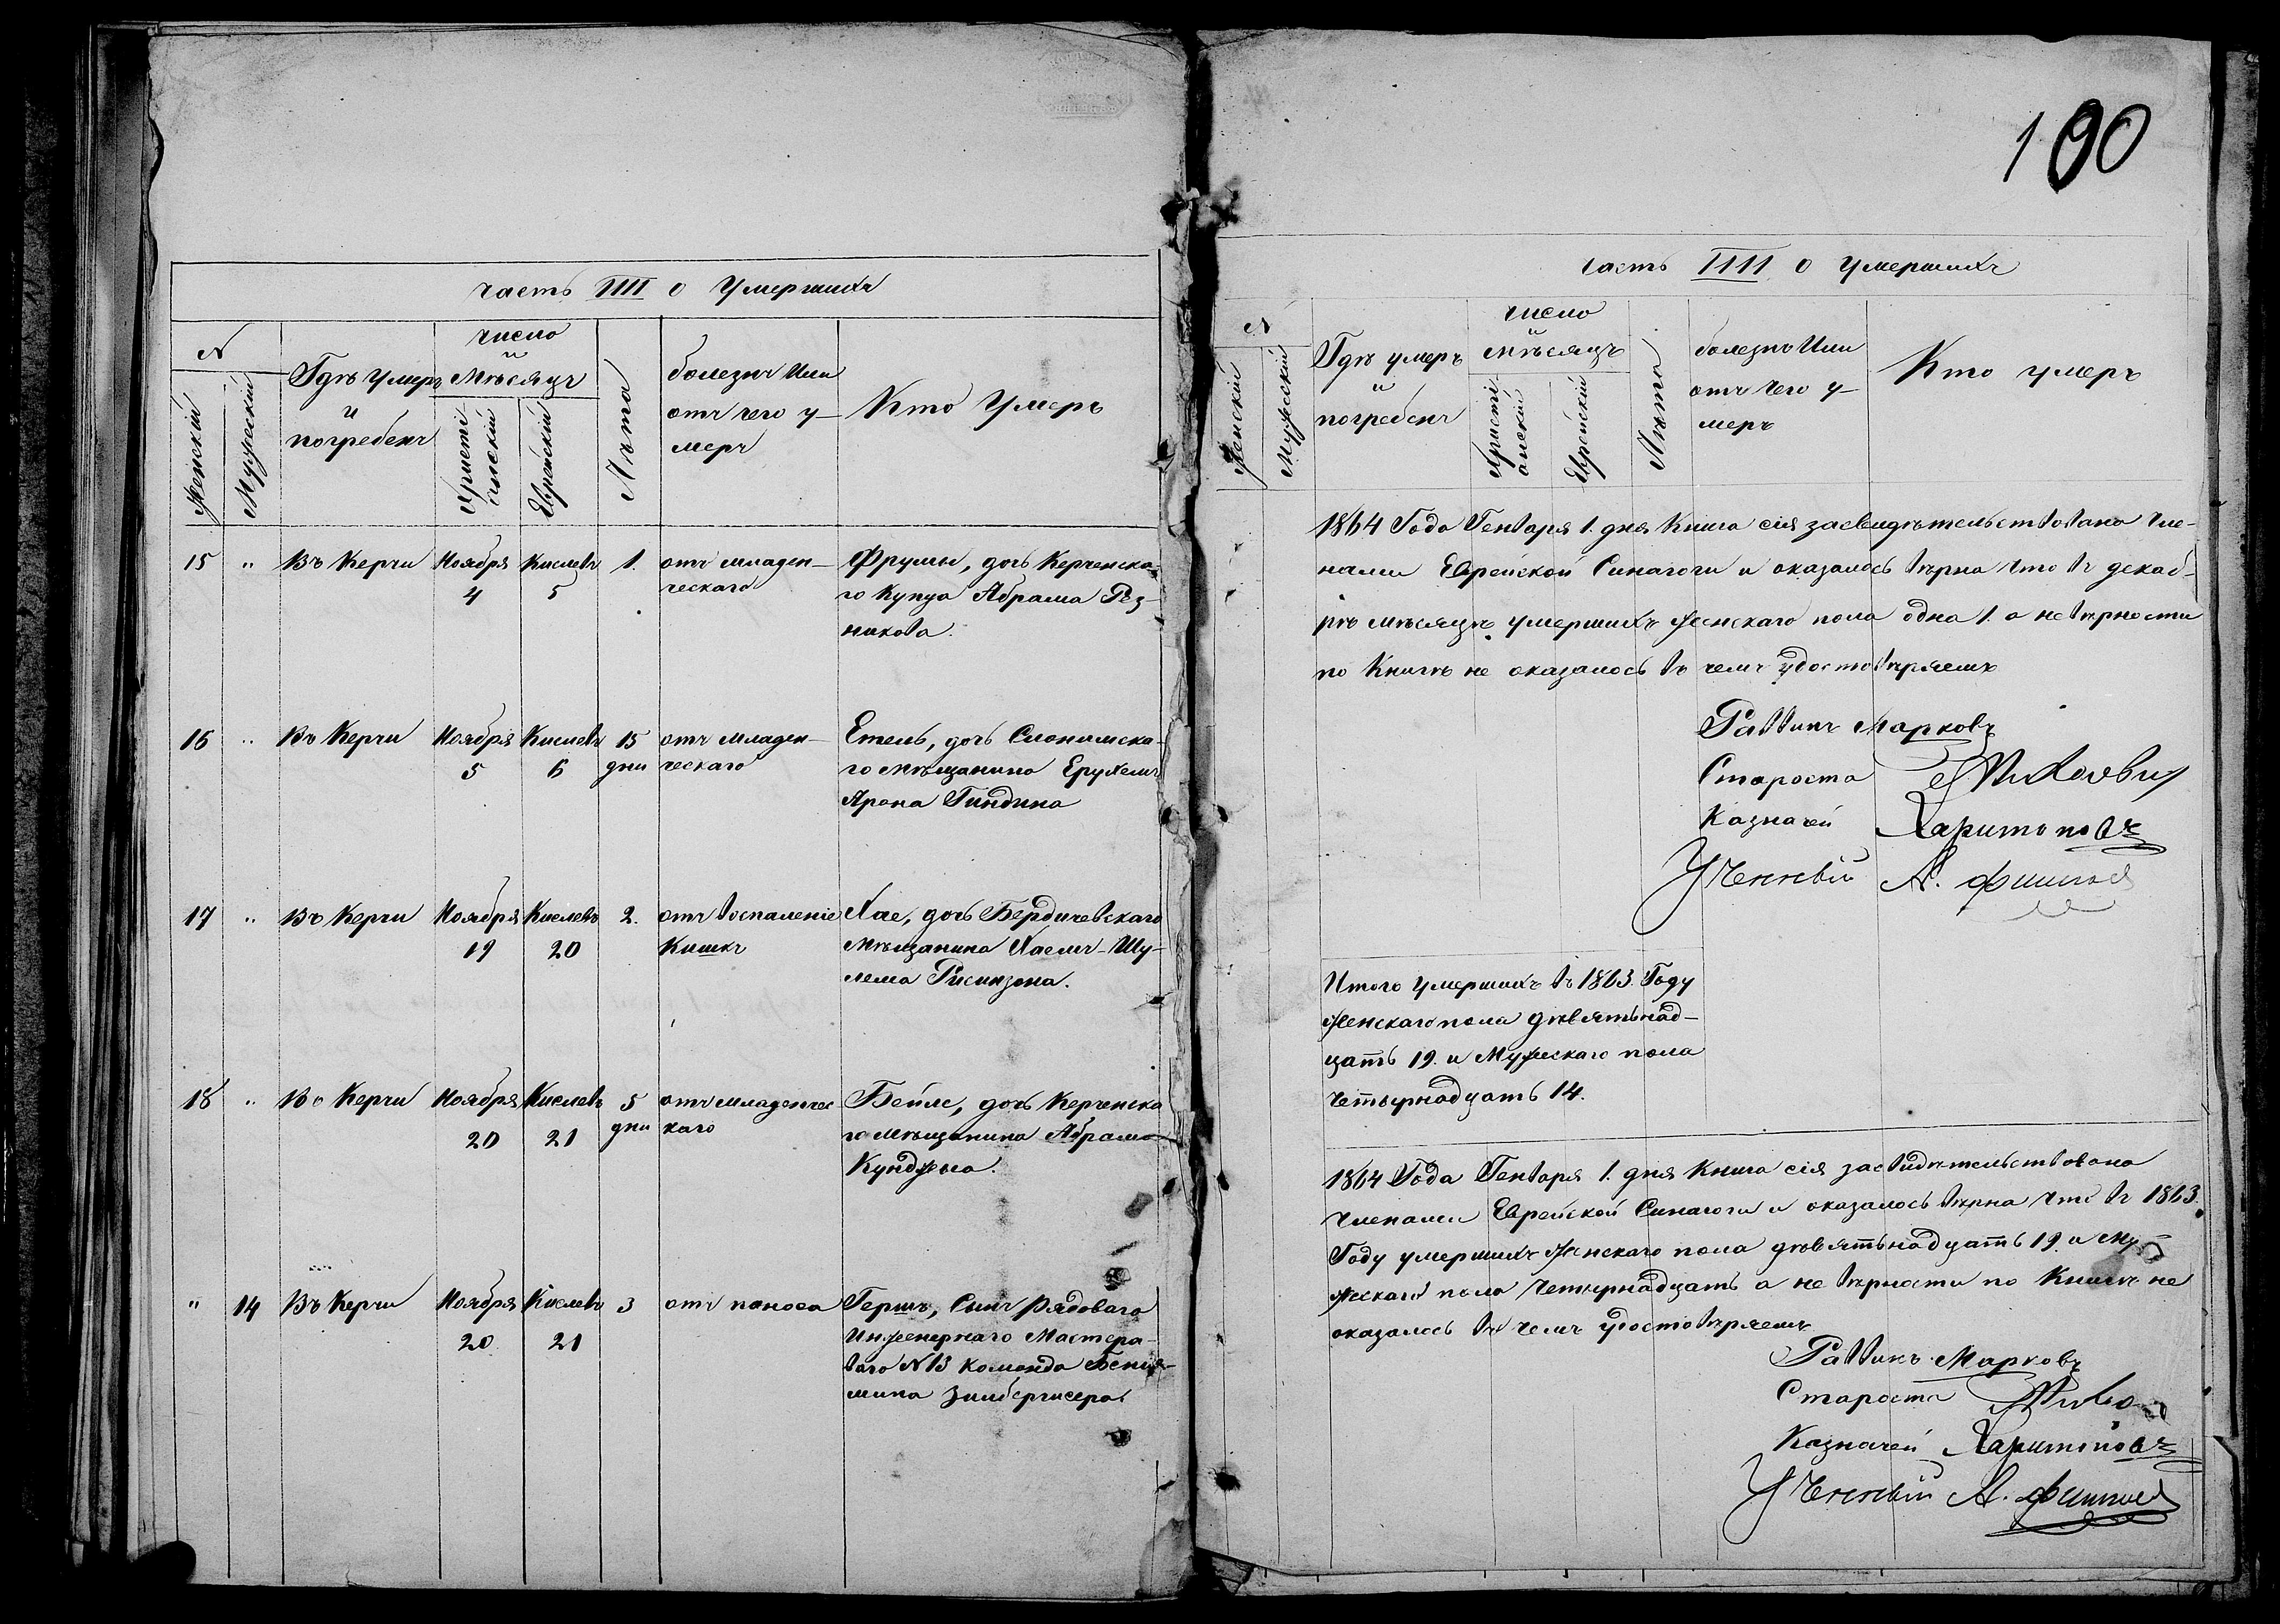 190
часть IIII о Умершихъ
N
Женский
Мужеский
Гдѣ Умеръ
и
погребенъ
число
и
Мѣсяцъ
Христі
анский
Еврейский
Лѣта
болезнь Или
отъ чего у-
меръ
Кто Умеръ
15 " Въ Керчи Ноября 4 Кислевъ 5 1. отъ младен-
ческаго
Фрумы, дочь Керченска-
го Купца Абрама Рѣз
никова.
16 " Въ Керчи Ноября 5 Кислевъ 6 15 дни отъ младен-
ческаго
Етель, дочь Слонимска-
го мѣщанина Ерухемъ
Арона Гиндина
17 " Въ Керчи Ноября 19 Кислевъ 20 2. отъ воспаленіе
Кишкъ
Хае, дочь Бердичевскаго
Мѣщанина Хаемъ-Шу-
лема
18 " Въ Керчи Ноября 20 Кислевъ 21 5 дни отъ младенчес
каго
Бейле, дочь Керченска
го мѣщанина Абрама
" 14 Въ Керчи Ноября 20 Кислевъ 21 3 отъ поноса
Гершъ, Сынъ рядоваго
Инженернаго Мастера-
ваго N 13 команда Бенья-
мина
часть IIII о Умершихъ
N
Женский
Мужеский
Гдѣ умеръ
и
погребенъ
число
и
мѣсяцъ
Христі
анский
Еврейский
Лѣта
болезнь Или
отъ чего у-
меръ
Кто умеръ
1864 Года Генваря 1. дня Книга сія засвидѣтельствована Чле-
нами Еврейской Синагоги и оказалось вѣрна что въ декаб-
рѣ мѣсяцѣ умершихъ Женскаго пола одна 1. а не вѣрности
по Книгѣ не оказалось въ чемъ удостовѣряемъ
Раввинъ Марковъ
Староста
Казначей Харитоновъ
Ученный А.
Итого умершихъ въ 1863. Году
Женскаго пола дѣвятьнад-
цать 19. и Мужескаго пола
Четырнадцать 14.
1864 Года Генваря 1. дня Книга сія засвидѣтельствована
Членами Еврейской Синагоги и оказалось вѣрна что въ 1863.
Году умершихъ Женскаго пола дѣвятьнадцать 19. и Му-
жескаго пола Четырнадцать а не вѣрности по Книгѣ не
оказалось въ чемъ удостовѣряемъ
Раввинъ Марковъ
Староста
Казначей Харитоновъ
Ученный А.